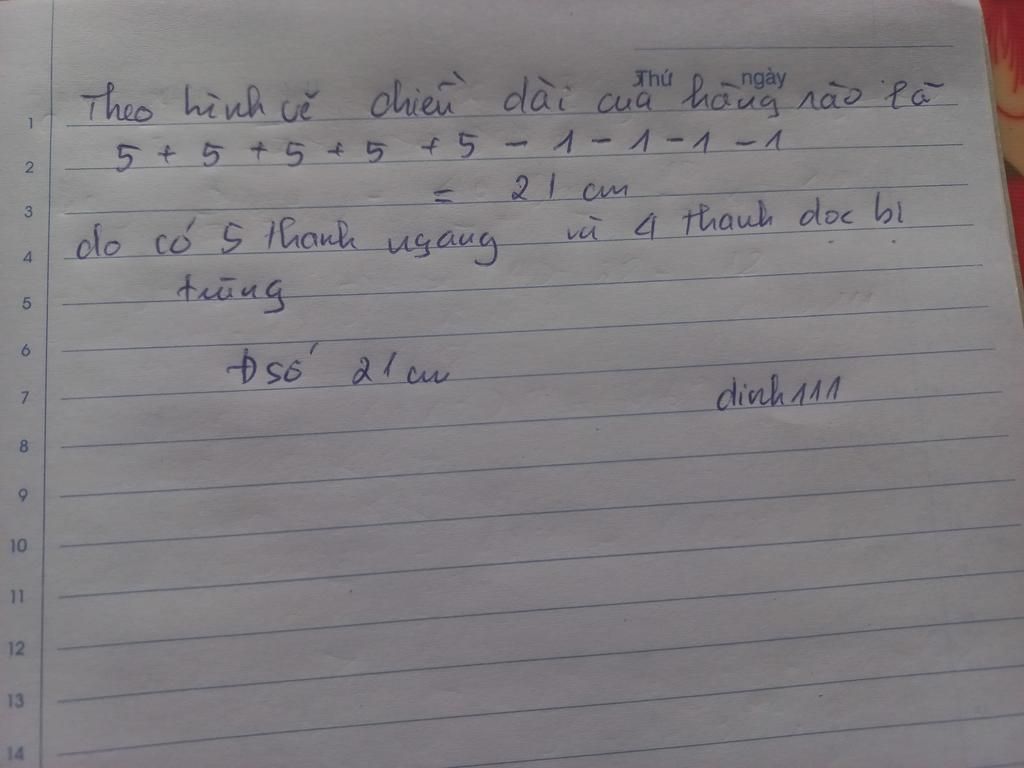 Thứ ngày
Theo hình vẽ chiều dài của hàng rào là
1
5 + 5 + 5 + 5 + 5 - 1 - 1 - 1 - 1
2
= 21 cm
3
do có 5 thanh ngang và 4 thanh dọc bị
4
trùng
5
6
Đ số 21 cm
7
dinh111
8
9
10
11
12
13
14